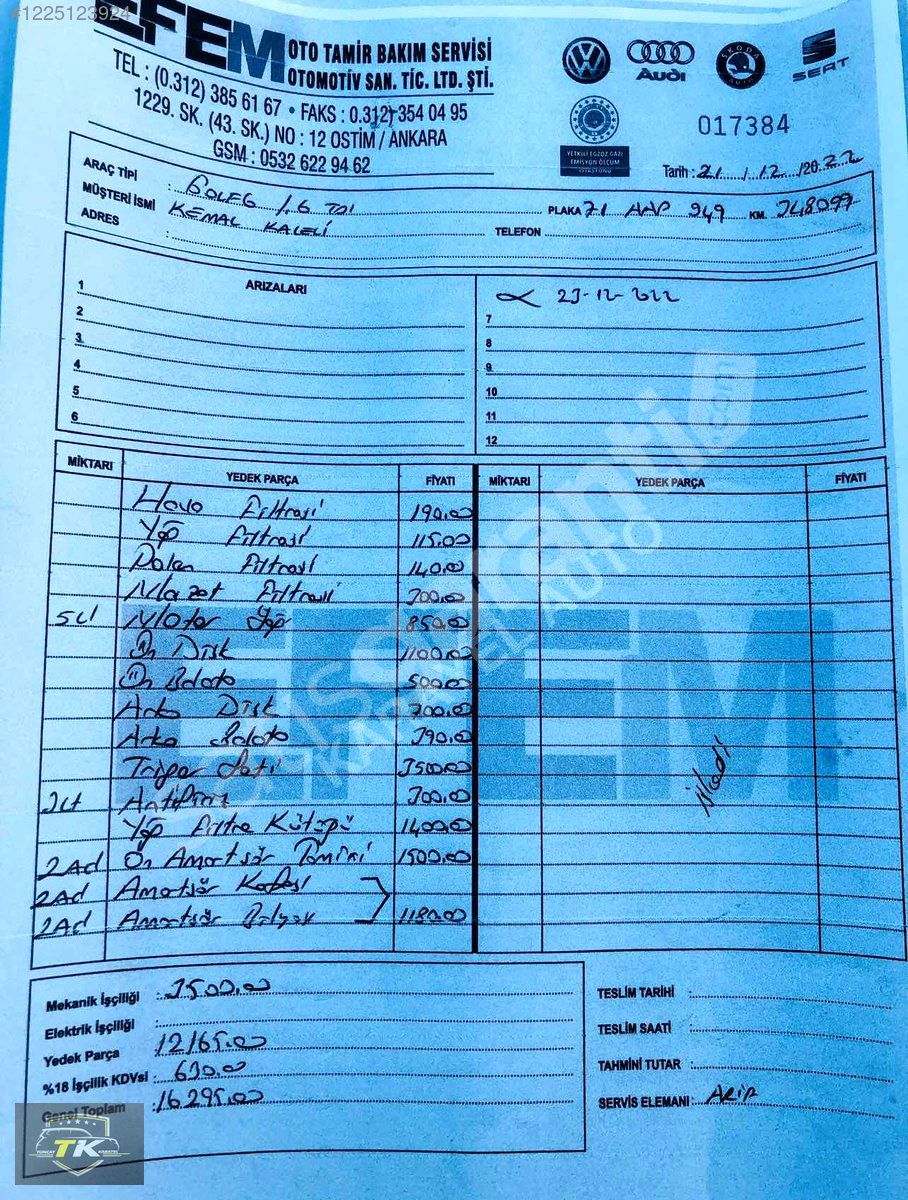 #1225123924
EFEM OTO TAMİR BAKIM SERVİSİ
OTOMOTİV SAN. TİC. LTD. ŞTİ.
TEL : (0.312) 385 61 67 • FAKS : 0.312) 354 04 95
1229. SK. (43. SK.) NO : 12 OSTİM / ANKARA
GSM : 0532 622 94 62
Audi
SKODA
AUTO
SEAT
YETKİLİ EGZOZ GAZI
EMİSYON ÖLÇÜM
İSTASYONU
017384
Tarih : 21 / 12 / 2022
ARAÇ TİPİ : GOLF6 1.6 TDI
PLAKA 71 AAP 949 KM. 248099
MÜŞTERİ İSMİ : KEMAL KALELİ
TELEFON
ADRES :
ARIZALARI
23-12-2022
1
2
3
4
5
6
7
8
9
10
11
12
MİKTARI YEDEK PARÇA FİYATI MİKTARI YEDEK PARÇA FİYATI
Hava Filtresi 190.00
Yağ Filtresi 115.00
Polen Filtresi 140.00
Mazot Filtresi 300.00
5Lt Motor Yağı 850.00
Ön Disk 1100.00
Ön Balata 500.00
Arka Disk 700.00
Arka Balata 390.00
Triger Seti 3500.00
Antifiriz 300.00
Yağ Filtre Kütüğü 1400.00
2Ad Ön Amortisör Tamiri 1500.00
2Ad Amortisör Kafası
2Ad Amortisör Bilyası 1180.00
EFEM
Mekanik İşçiliği : 3500.00
Elektrik İşçiliği :
Yedek Parça : 12165.00
%18 İşçilik KDVsi : 630.00
Genel Toplam : 16295.00
TESLİM TARİHİ :
TESLİM SAATİ :
TAHMİNİ TUTAR :
SERVİS ELEMANI : ARİF
TK